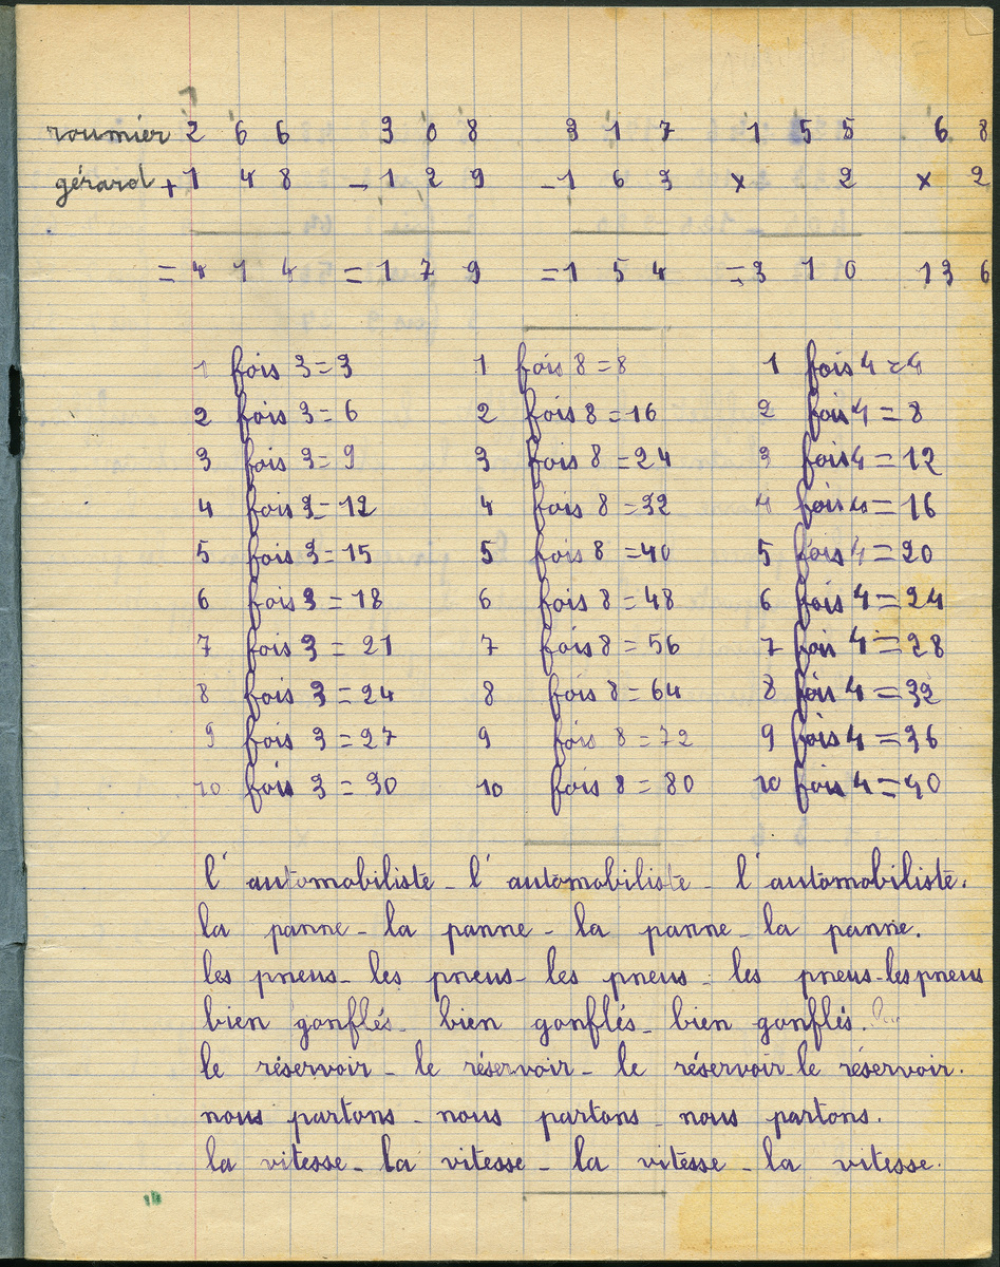 1
roumier 2 6 6 3 0 8 3 1 7 1 5 5 6 8
gérard + 1 4 8 - 1 2 9 - 1 6 3 x 2 x 2
= 4 1 4 = 1 7 9 = 1 5 4 = 3 1 0 1 3 6
1 fois 3 = 3 1 fois 8 = 8 1 fois 4 = 4
2 fois 3 = 6 2 fois 8 = 16 2 fois 4 = 8
3 fois 3 = 9 3 fois 8 = 24 3 fois 4 = 12
4 fois 3 = 12 4 fois 8 = 32 4 fois 4 = 16
5 fois 3 = 15 5 fois 8 = 40 5 fois 4 = 20
6 fois 3 = 18 6 fois 8 = 48 6 fois 4 = 24
7 fois 3 = 21 7 fois 8 = 56 7 fois 4 = 28
8 fois 3 = 24 8 fois 8 = 64 8 fois 4 = 32
9 fois 3 = 27 9 fois 8 = 72 9 fois 4 = 36
10 fois 3 = 30 10 fois 8 = 80 10 fois 4 = 40
l'automobiliste - l'automobiliste - l'automobiliste.
la panne - la panne - la panne - la panne.
les pneus - les pneus - les pneus - les pneus - les pneus
bien gonflés - bien gonflés - bien gonflés.
le réservoir - le réservoir - le réservoir - le réservoir.
nous partons - nous partons - nous partons.
la vitesse - la vitesse - la vitesse - la vitesse.